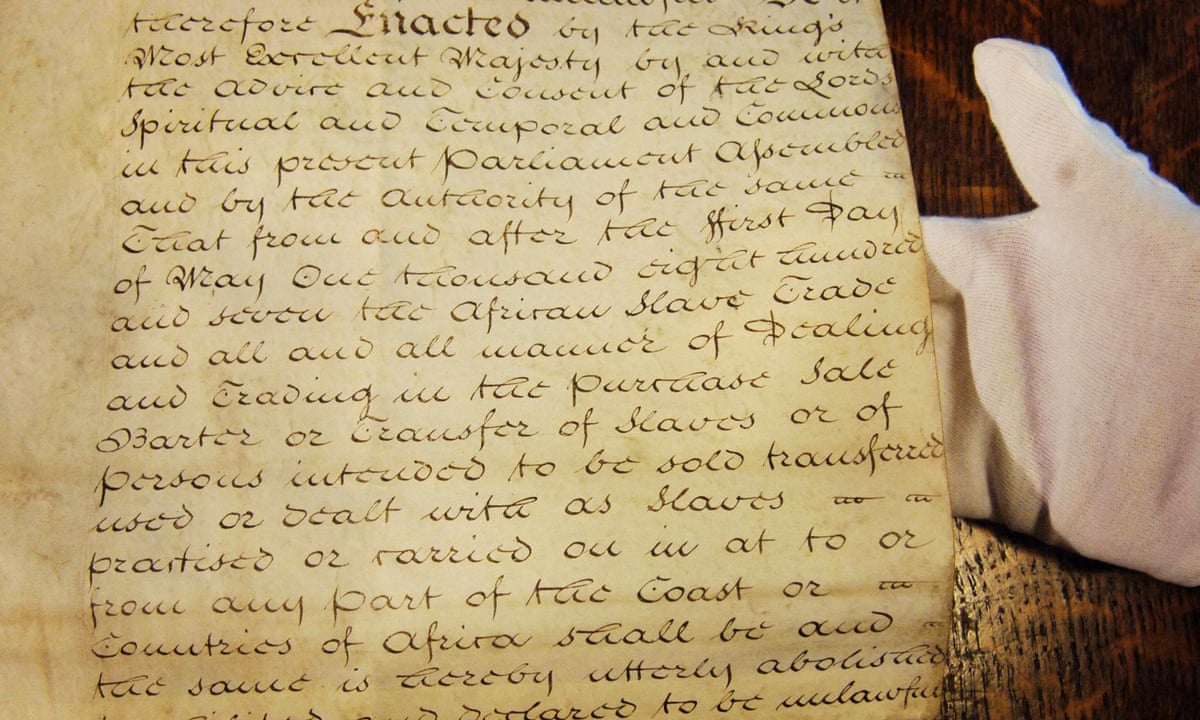 therefore Enacted by the King's
Most Excellent Majesty by and with
the Advice and Consent of the Lords
Spiritual and Temporal and Commons
in this present Parliament Assembled
and by the Authority of the same
That from and after the ffirst Day
of May One thousand eight hundred
and seven the African Slave Trade
and all and all manner of Dealing
and Trading in the Purchase Sale
Barter or Transfer of Slaves or of
Persons intended to be sold transferred
used or dealt with as Slaves
practised or carried on in at to or
from any Part of the Coast or
Countries of Africa shall be and
the same is hereby utterly abolished
and declared to be unlawful